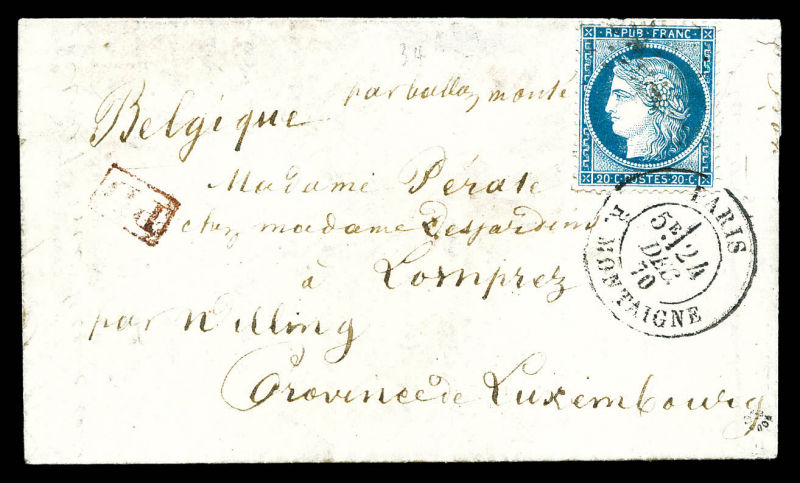 REPUB·FRANC·
20·C·POSTES·20·C·
34
par ballon monté
Belgique
P.D.
Madame Pérate
chez madame Desjardins
à Lomprez
par Willing
Province de Luxembourg
PARIS
5E
24
DEC.
70
R. MONTAIGNE